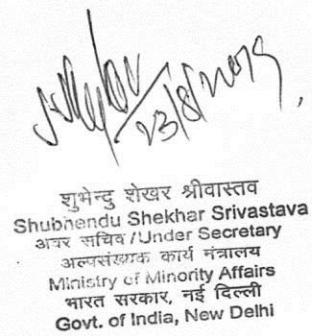 23/8/2019
शुभेन्दु शेखर श्रीवास्तव
Shubhendu Shekhar Srivastava
अवर सचिव/Under Secretary
अल्पसंख्यक कार्य मंत्रालय
Ministry of Minority Affairs
भारत सरकार, नई दिल्ली
Govt. of India, New Delhi